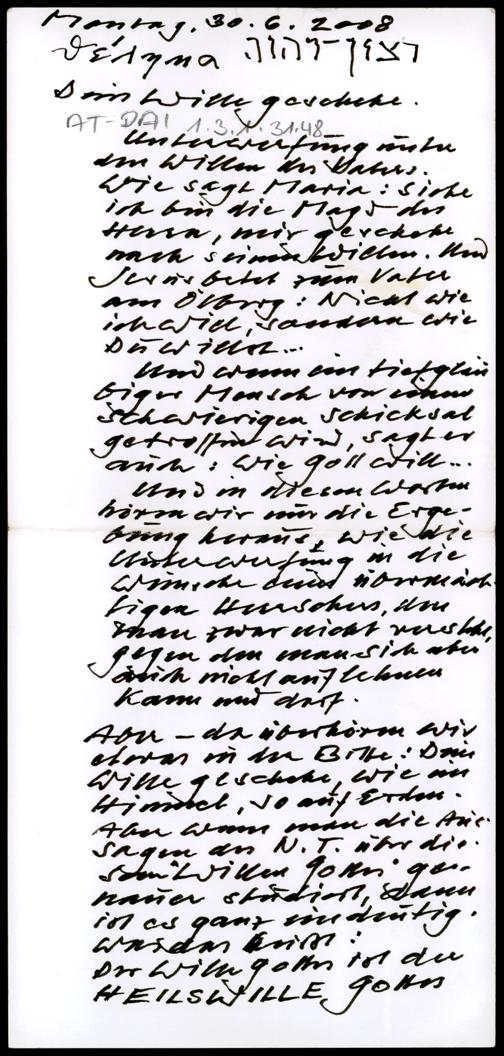 Montag, 30. 6. 2008
θέλημα רצון־יהוה
Dein Wille geschehe.
AT-DAI 1.3.1.3148
Unterwerfung unter
den Willen des Vaters.
Wie sagt Maria: Siehe
ich bin die Magd des
Herrn, mir geschehe
nach seinem Willen. Und
Jesus betet zum Vater
am Ölberg: Nicht wie
ich will, sondern wie
Du willst...
Und wenn ein tiefgläu
biger Mensch von einem
schwierigen Schicksal
getroffen wird, sagt er
auch: wie Gott will...
Und in diesen Worten
hören wir nur die Erge-
bung heraus, wie die
Unterwerfung in die
Wünsche eines übermäch-
tigen Herrschers, den
man zwar nicht versteht,
gegen den man sich aber
auch nicht auflehnen
kann und darf.
Aber – da überhören wir
etwas in der Bitte: Dein
Wille geschehe, wie im
Himmel, so auf Erden.
Aber wenn man die Aus-
sagen des N.T. über die-
sen "Willen Gottes" ge-
nauer studiert, dann
ist es ganz eindeutig.
was das heißt:
Der Wille Gottes ist der
HEILSWILLE Gottes